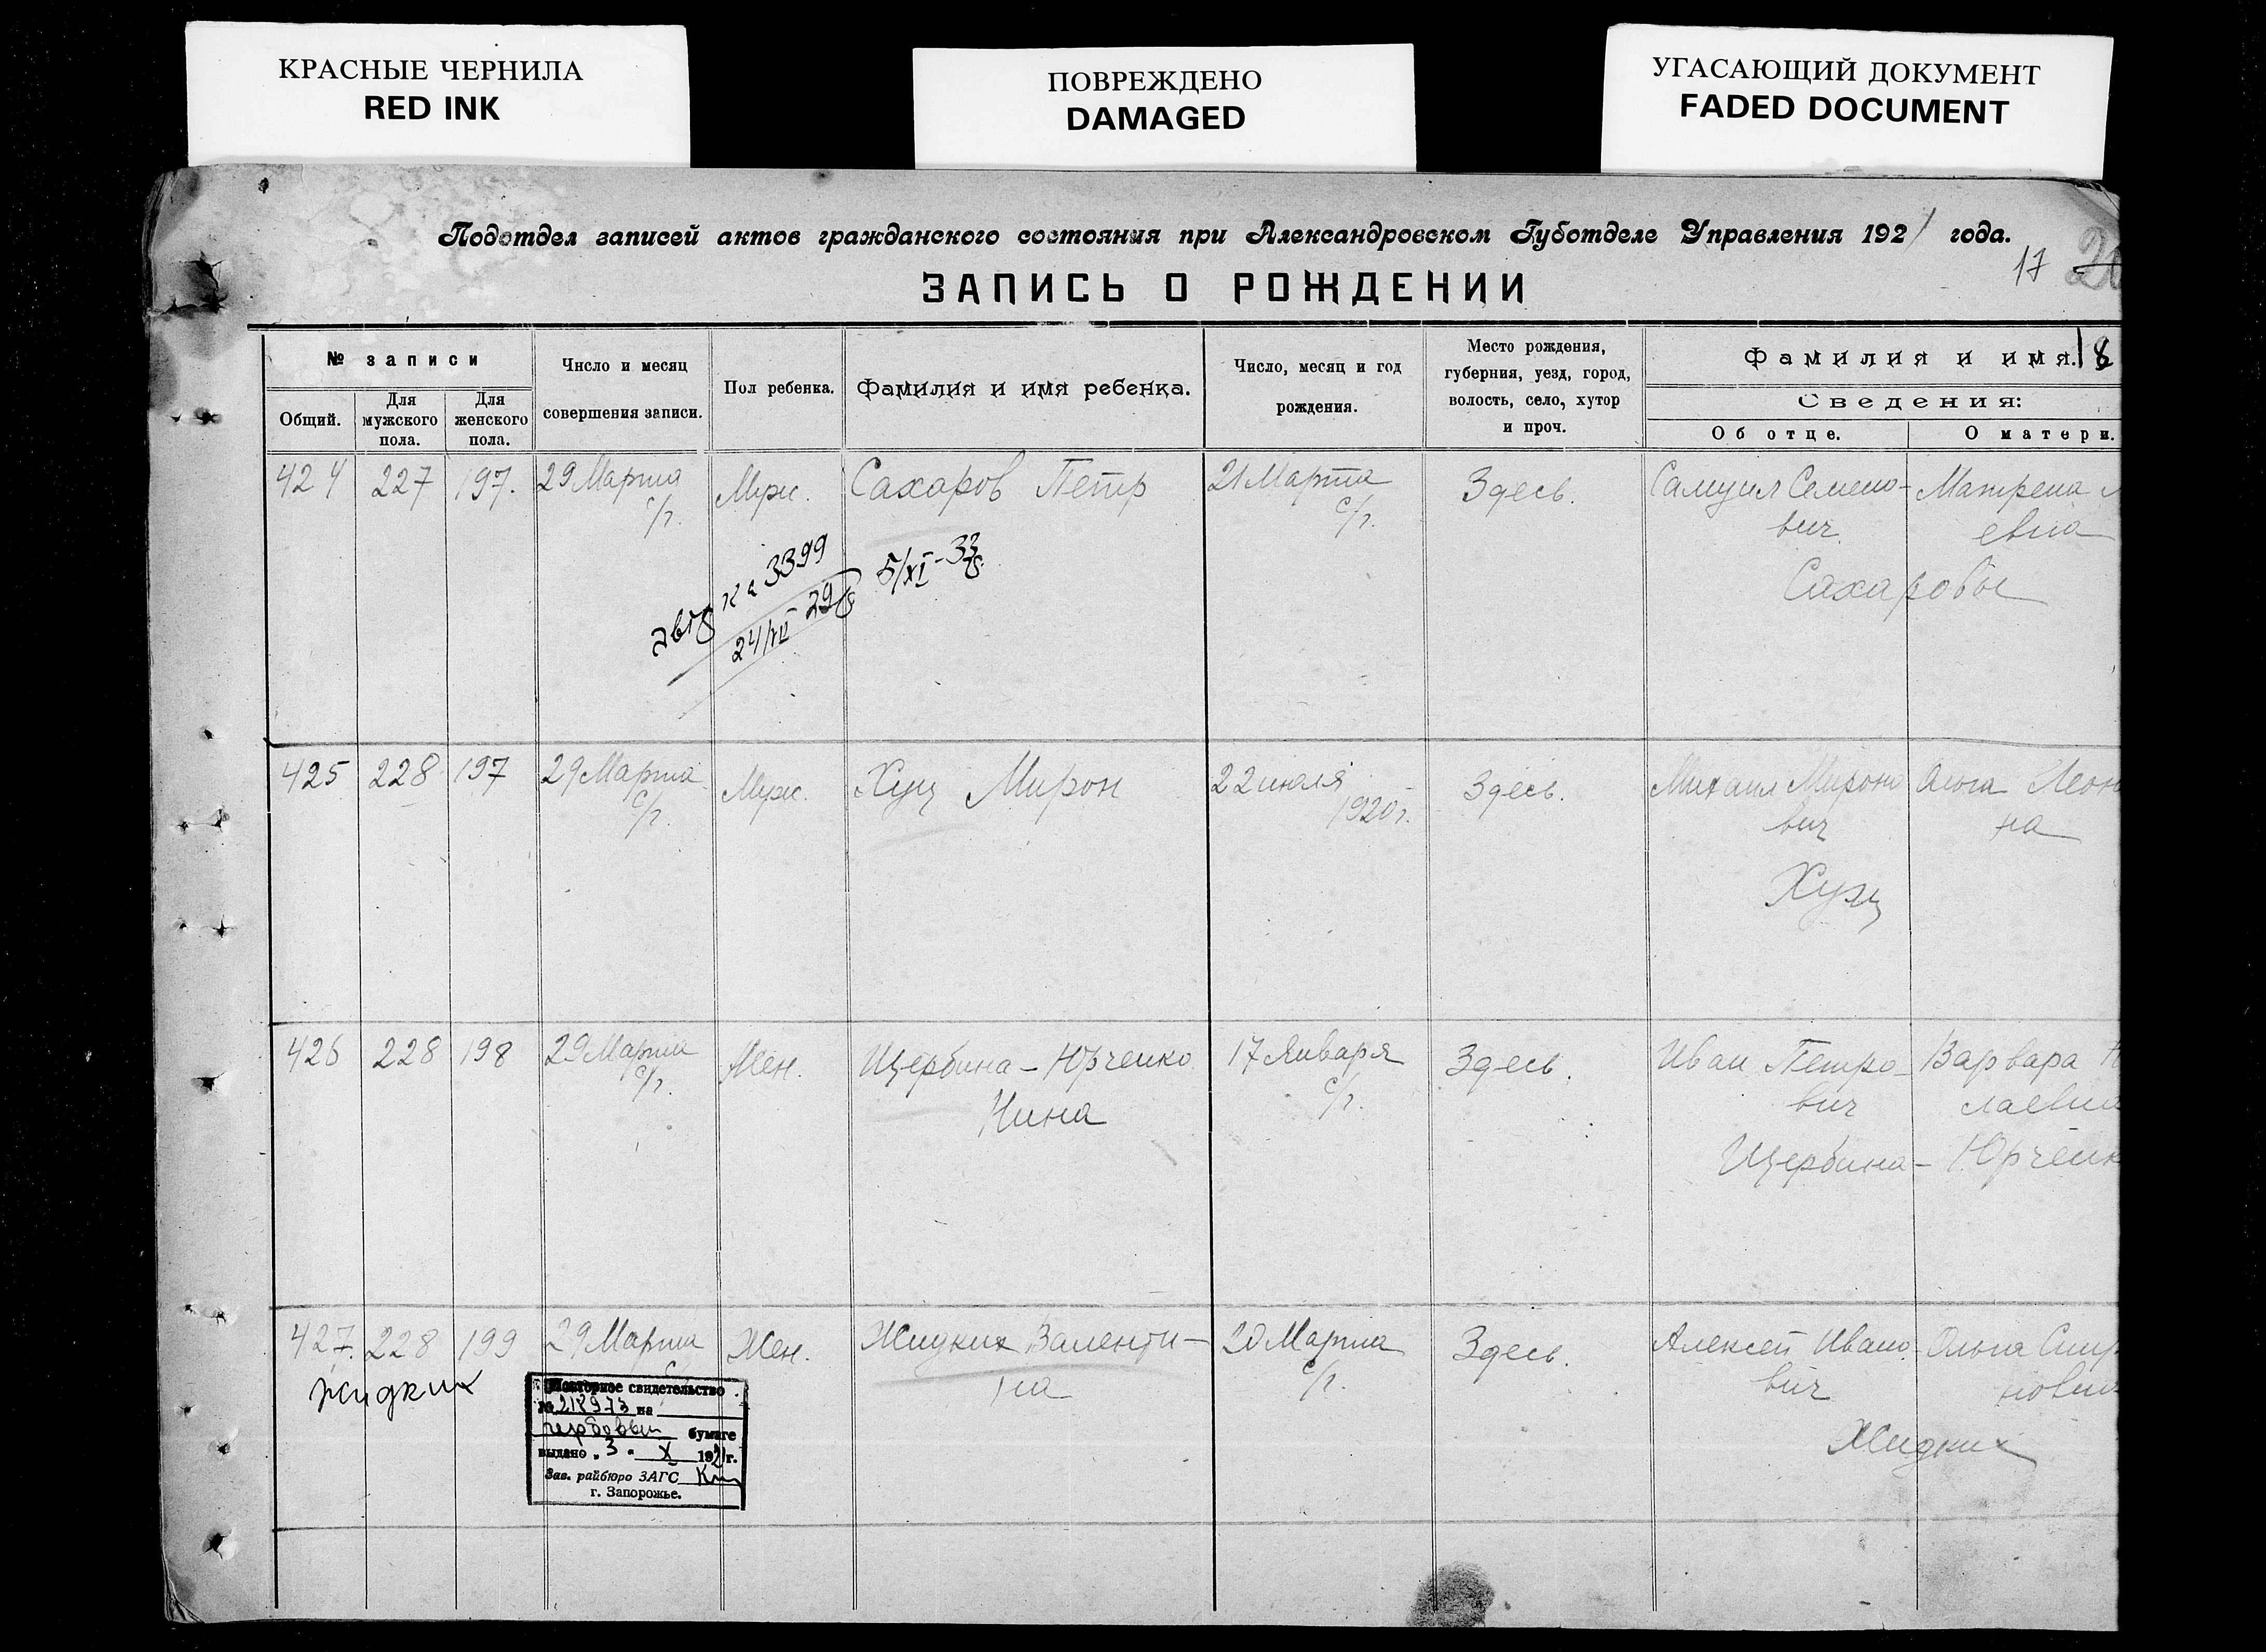 КРАСНЫЕ ЧЕРНИЛА
RED INK
ПОВРЕЖДЕНО
DAMAGED
УГАСАЮЩИЙ ДОКУМЕНТ
FADED DOCUMENT
Подотдел записей актов гражданского состояния при Александровском Губотделе Управления 1921 года.
17
ЗАПИСЬ О РОЖДЕНИИ
№ записи
Общий.
Для мужского пола.
Для женского пола.
Число и месяц
совершения записи.
Пол ребенка.
Фамилия и имя ребенка.
Число, месяц и год
рождения.
Место рождения,
губерния, уезд, город,
волость, село, хутор
и проч.
Фамилия и имя. 18
Сведения:
Об отце.
О матери.
424 227 197. 29 Марта Муж. Сахаров Петр 21 Марта Здесь. Самуил Семено- Матрена
с/г. с/г. вич евна
Сахаровы
на 3399 5/XI-33
24/VII 29
425 228 197 29 Марта Муж. Хущ Мирон 22 июля Здесь. Михаил Мироно Ольга Леон
с/г. 1920 г. вич на
Хущ
426 228 198 29 Марта Жен. Щербина-Юрченко 17 Января Здесь. Иван Петро- Варвара
с/г. Нина с/г. вич лаевна
Щербина- Юрченк
427. 228 199 29 Марта Жен. Жидких Валенти- 20 Марта Здесь. Алексей Ивано- Ольга Спир
на с/г. вич новна
Жидких
Жидких
Повторное свидетельство
№ 218973 на
гербовой бумаге
выдано „3" X 192 г.
Зав. райбюро ЗАГС
г. Запорожье.